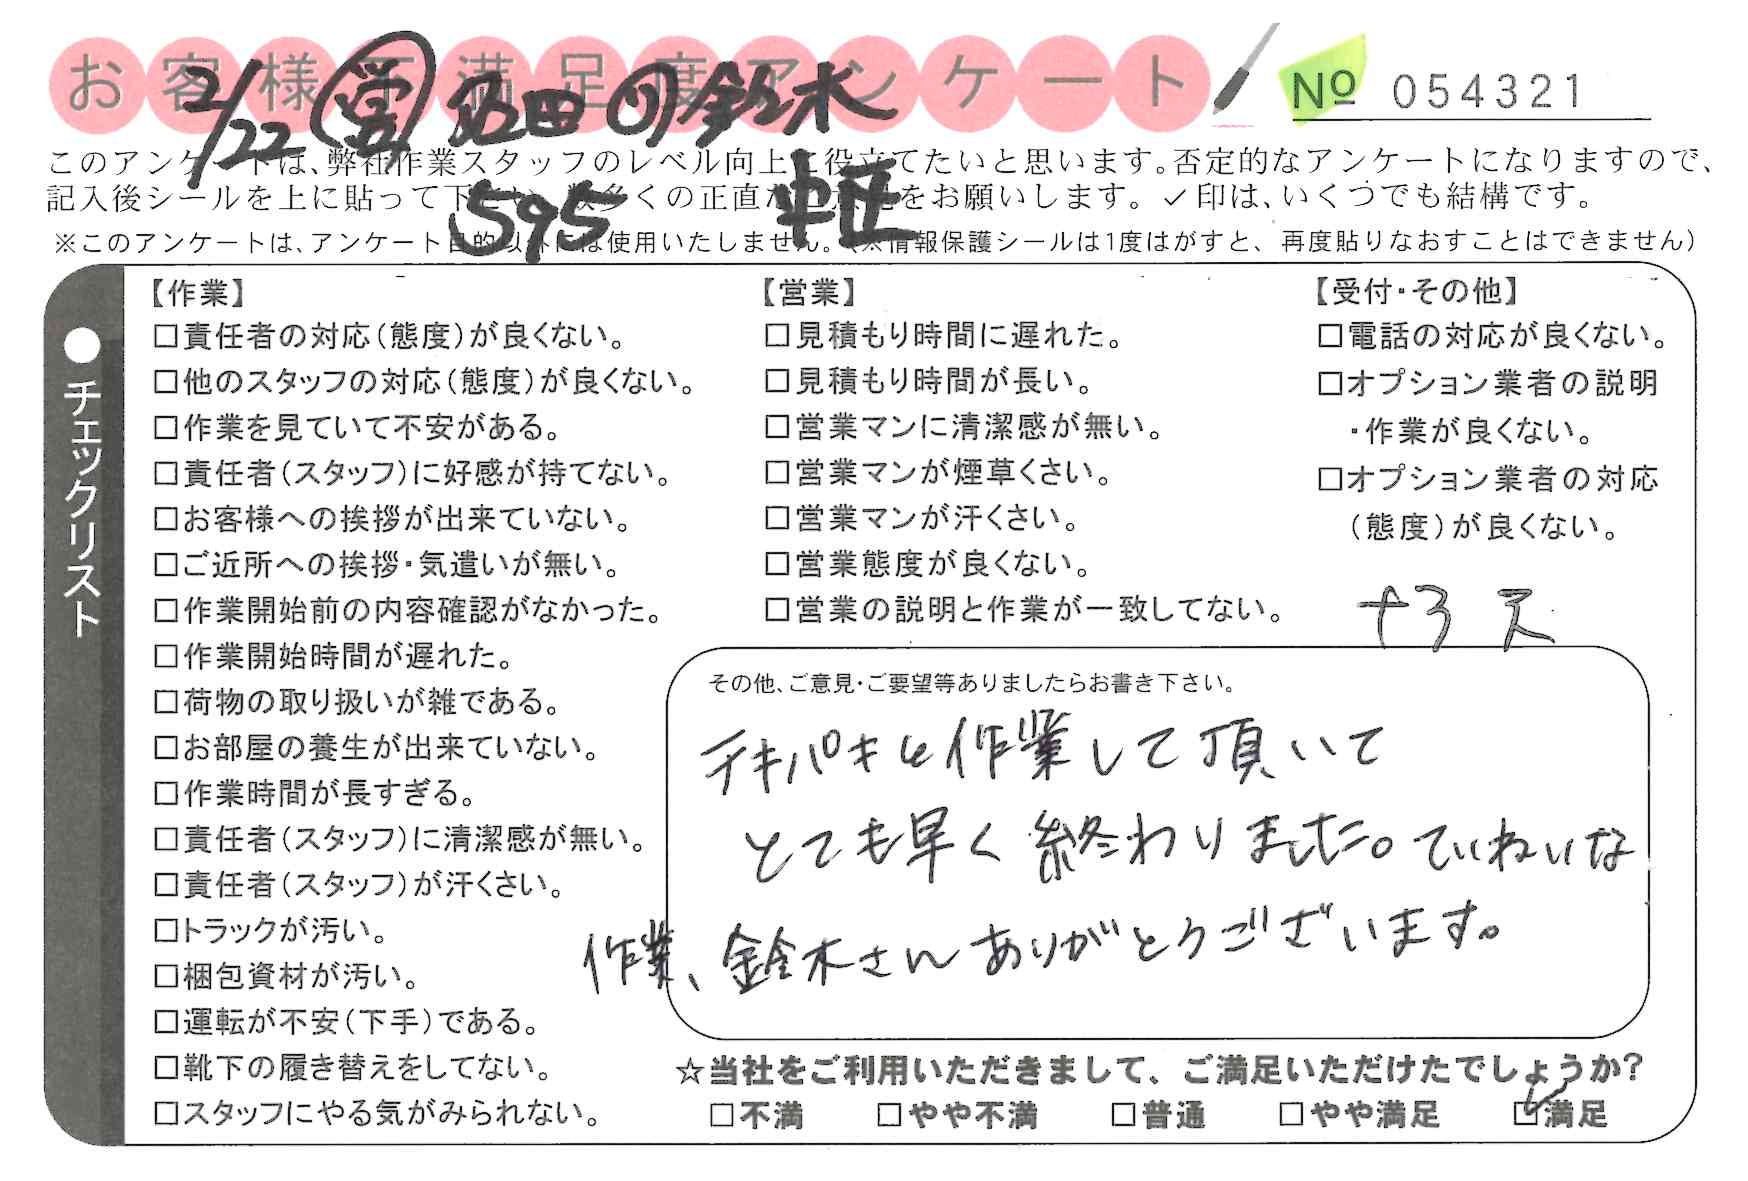 お客様不満足度アンケート
No 054321
2/22 営 沼田 リ 鈴木
595
このアンケートは、弊社作業スタッフのレベル向上に役立てたいと思います。否定的なアンケートになりますので、
記入後シールを上に貼って下さい。数多くの正直な をお願いします。✓印は、いくつでも結構です。
※このアンケートは、アンケート目的以外には使用いたしません。(※情報保護シールは1度はがすと、再度貼りなおすことはできません)
●チェックリスト
【作業】
□責任者の対応(態度)が良くない。
□他のスタッフの対応(態度)が良くない。
□作業を見ていて不安がある。
□責任者(スタッフ)に好感が持てない。
□お客様への挨拶が出来ていない。
□ご近所への挨拶・気遣いが無い。
□作業開始前の内容確認がなかった。
□作業開始時間が遅れた。
□荷物の取り扱いが雑である。
□お部屋の養生が出来ていない。
□作業時間が長すぎる。
□責任者(スタッフ)に清潔感が無い。
□責任者(スタッフ)が汗くさい。
□トラックが汚い。
□梱包資材が汚い。
□運転が不安(下手)である。
□靴下の履き替えをしてない。
□スタッフにやる気がみられない。
【営業】
□見積もり時間に遅れた。
□見積もり時間が長い。
□営業マンに清潔感が無い。
□営業マンが煙草くさい。
□営業マンが汗くさい。
□営業態度が良くない。
□営業の説明と作業が一致してない。
【受付・その他】
□電話の対応が良くない。
□オプション業者の説明
・作業が良くない。
□オプション業者の対応
(態度)が良くない。
+3 ス
その他、ご意見・ご要望等ありましたらお書き下さい。
テキパキと作業して頂いて
とても早く終わりました。ていねいな
作業、鈴木さんありがとうございます。
☆当社をご利用いただきまして、ご満足いただけたでしょうか?
□不満 □やや不満 □普通 □やや満足 ☑満足